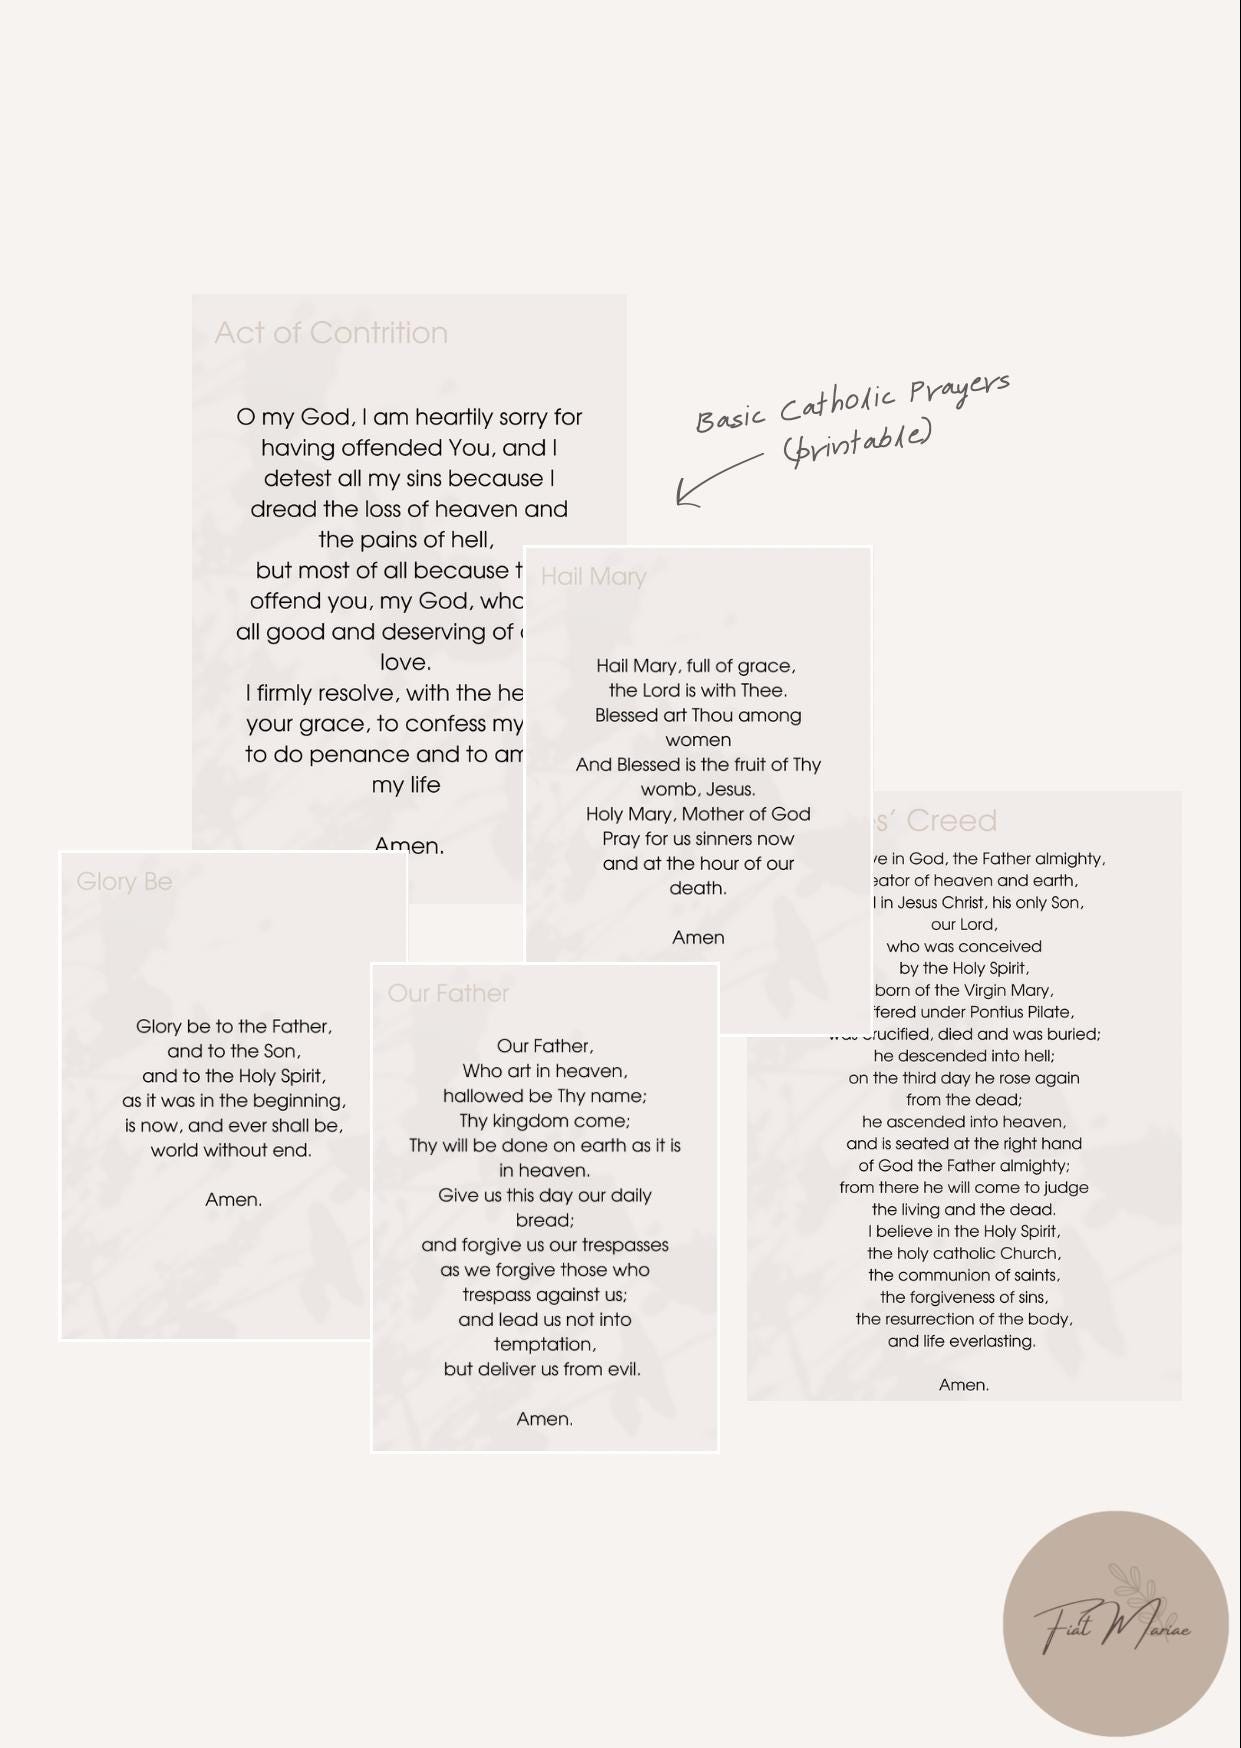 Act of Contrition
O my God, I am heartily sorry for
having offended You, and I
detest all my sins because I
dread the loss of heaven and
the pains of hell,
but most of all because
offend you, my God,
all good and deserving of
love.
I firmly resolve, with the
your grace, to confess my
to do penance and to
my life
Amen.
Basic Catholic Prayers
(printable)
Hail Mary
Hail Mary, full of grace,
the Lord is with Thee.
Blessed art Thou among
women
And Blessed is the fruit of Thy
womb, Jesus.
Holy Mary, Mother of God
Pray for us sinners now
and at the hour of our
death.
Amen
Glory Be
Glory be to the Father,
and to the Son,
and to the Holy Spirit,
as it was in the beginning,
is now, and ever shall be,
world without end.
Amen.
Our Father
Our Father,
Who art in heaven,
hallowed be Thy name;
Thy kingdom come;
Thy will be done on earth as it is
in heaven.
Give us this day our daily
bread;
and forgive us our trespasses
as we forgive those who
trespass against us;
and lead us not into
temptation,
but deliver us from evil.
Amen.
Creed
in God, the Father almighty,
of heaven and earth,
in Jesus Christ, his only Son,
our Lord,
who was conceived
by the Holy Spirit,
born of the Virgin Mary,
under Pontius Pilate,
was crucified, died and was buried;
he descended into hell;
on the third day he rose again
from the dead;
he ascended into heaven,
and is seated at the right hand
of God the Father almighty;
from there he will come to judge
the living and the dead.
I believe in the Holy Spirit,
the holy catholic Church,
the communion of saints,
the forgiveness of sins,
the resurrection of the body,
and life everlasting.
Amen.
Fiat Mariae